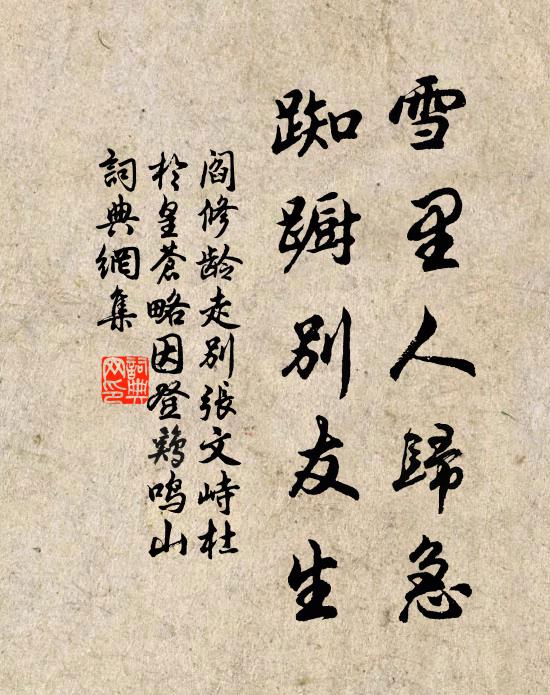 雪里人歸急
踟蹰別友生
阎修龄走別張文峙杜
於皇蒼略因登鶏鳴山
詞典網集
詞典
网印